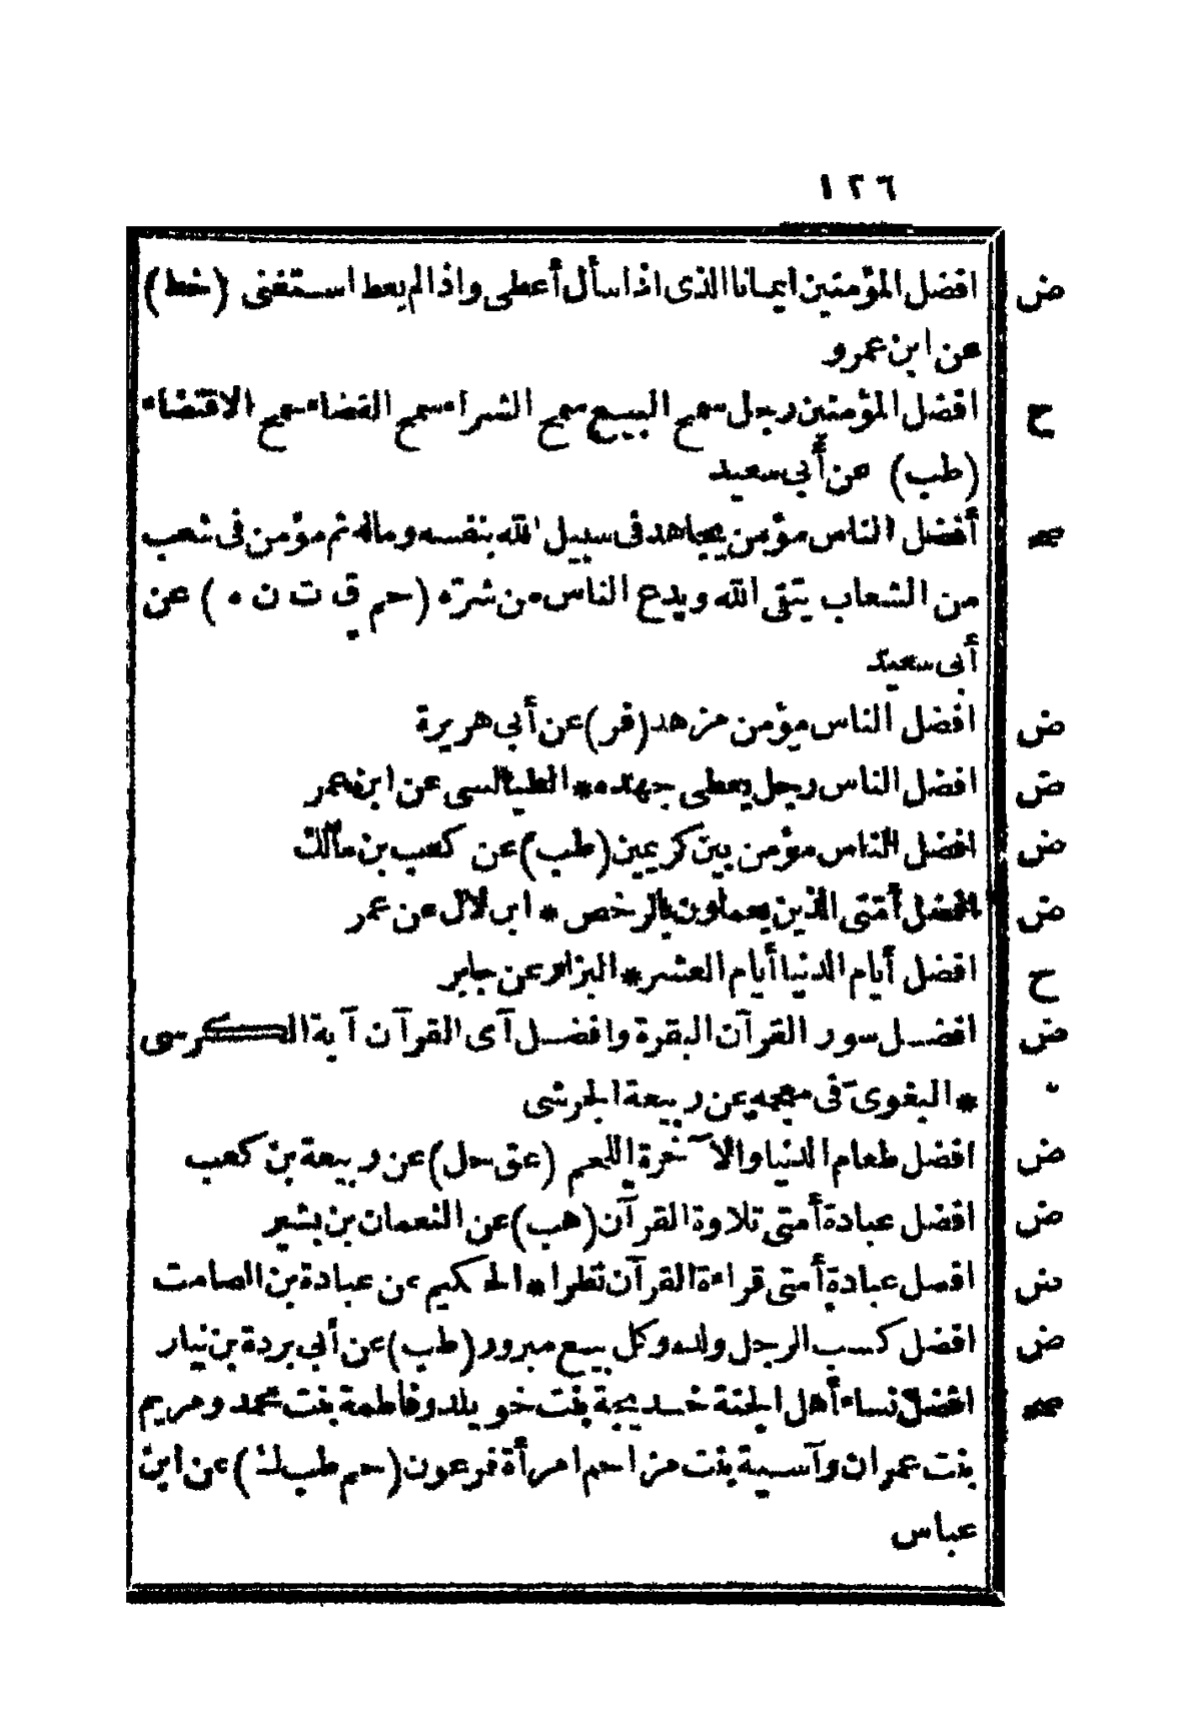 ١٢٦
ض افضل المؤمنين ايمانا الذى اذا سأل أعطى واذا لم يعط استغنى (خط)
عن ابن عمرو
ح افضل المؤمنين رجل سمح البيع سمح الشراء سمح القضاء سمح الاقتضاء
(طب) عن أبي سعيد
صح أفضل الناس مؤمن يجاهد فى سبيل الله بنفسه وماله ثم مؤمن فى شعب
من الشعاب يتقى الله ويدع الناس من شرّه (حم ق ت ن ه) عن
أبى سعيد
ض افضل الناس مؤمن مزهد (فر) عن أبي هريرة
ض افضل الناس رجل يعطى جهده * الطيالسى عن ابن عمر
ض افضل الناس مؤمن بين كريمين (طب) عن كعب بن مالك
ض افضل أمّتى الذين يعملون بالرخص * ابن لال عن عمر
ح افضل أيام الدنيا أيام العشر * البزار عن جابر
ض افضل سور القرآن البقرة وافضل آى القرآن آية الكرسى
* البغوى فى معجمه عن ربيعة الجرشى
ض افضل طعام الدنيا والآخرة اللحم (عق حل) عن ربيعة بن كعب
ض افضل عبادة أمتى تلاوة القرآن (هب) عن النعمان بن بشير
ض افضل عبادة أمتى قراءة القرآن نظرا * الحكيم عن عبادة بن الصامت
ض افضل كسب الرجل ولده وكل بيع مبرور (طب) عن أبي بردة بن نيار
صح افضل نساء أهل الجنة خديجة بنت خويلد وفاطمة بنت محمد ومريم
بنت عمران وآسية بنت مزاحم امرأة فرعون (حم طب ك) عن ابن
عباس